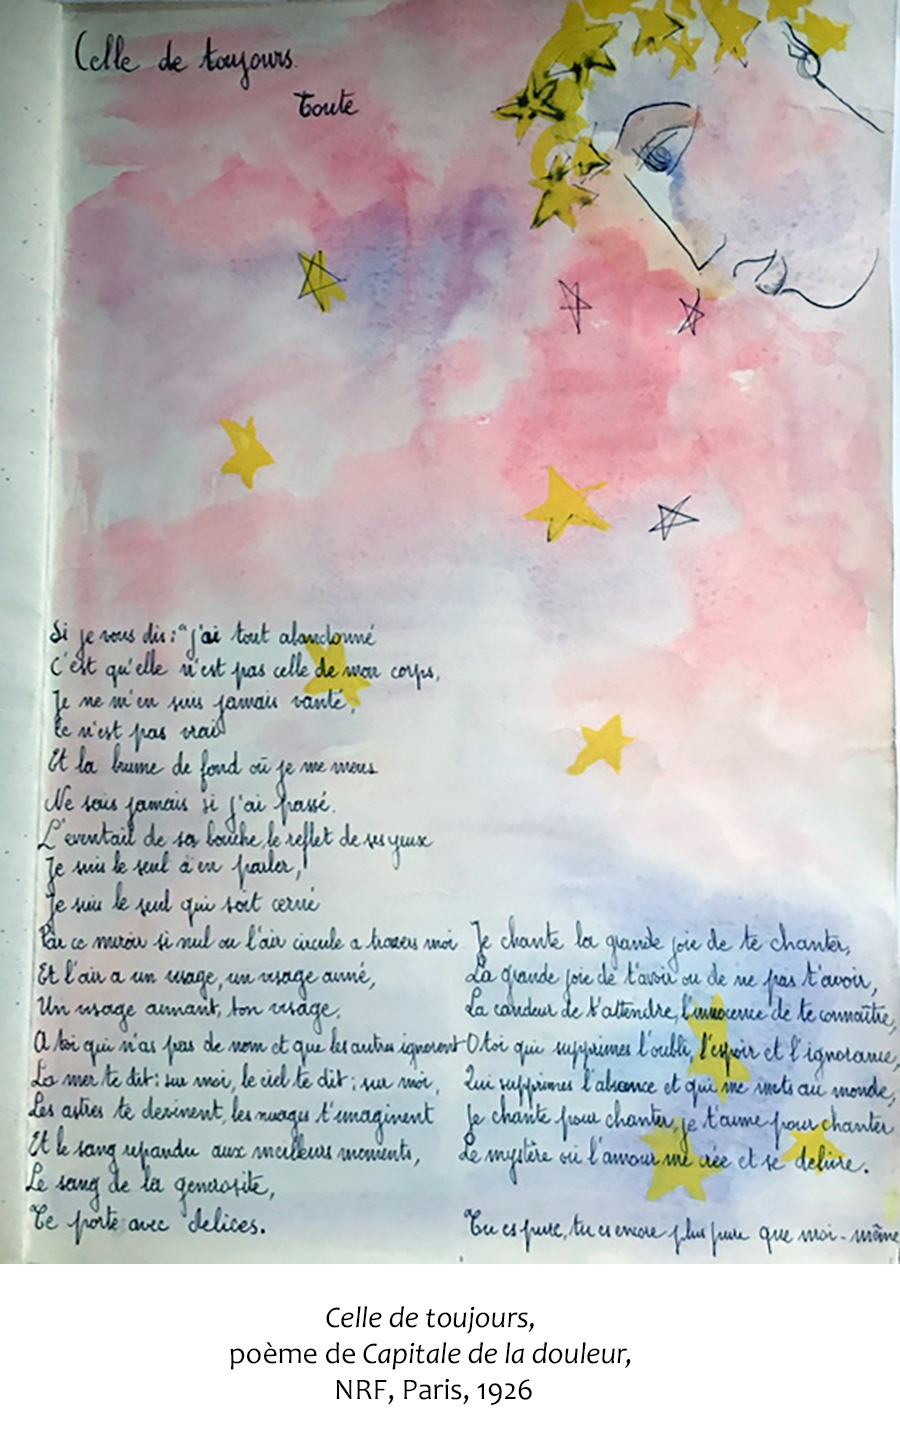 Celle de toujours.
Toute
Si je vous dis : "j'ai tout abandonné
C'est qu'elle n'est pas celle de mon corps,
Je ne m'en suis jamais vanté,
Ce n'est pas vrai
Et la brume de fond où je me meus
Ne sais jamais si j'ai passé.
L'eventail de sa bouche, le reflet de ses yeux
Je suis le seul à en parler,
Je suis le seul qui soit cerné
Par ce miroir si nul ou l'air circule a travers moi
Et l'air a un visage, un visage aimé,
Un visage aimant, ton visage.
A toi qui n'as pas de nom et que les autres ignorent
La mer te dit : sur moi, le ciel te dit : sur moi,
Les astres te devinent, les nuages t'imaginent
Et le sang repandu aux meilleurs moments,
Le sang de la generosite,
Te porte avec delices.
Je chante la grande joie de te chanter,
La grande joie de t'avoir ou de ne pas t'avoir,
La candeur de t'attendre, l'innocence de te connaître,
O toi qui supprimes l'oubli, l'espoir et l'ignorance,
Qui supprimes l'absence et qui me mets au monde,
Je chante pour chanter, je t'aime pour chanter
Le mystère où l'amour me crée et se delivre.
Tu es pure, tu es encore plus pure que moi-même
Celle de toujours,
poème de Capitale de la douleur,
NRF, Paris, 1926